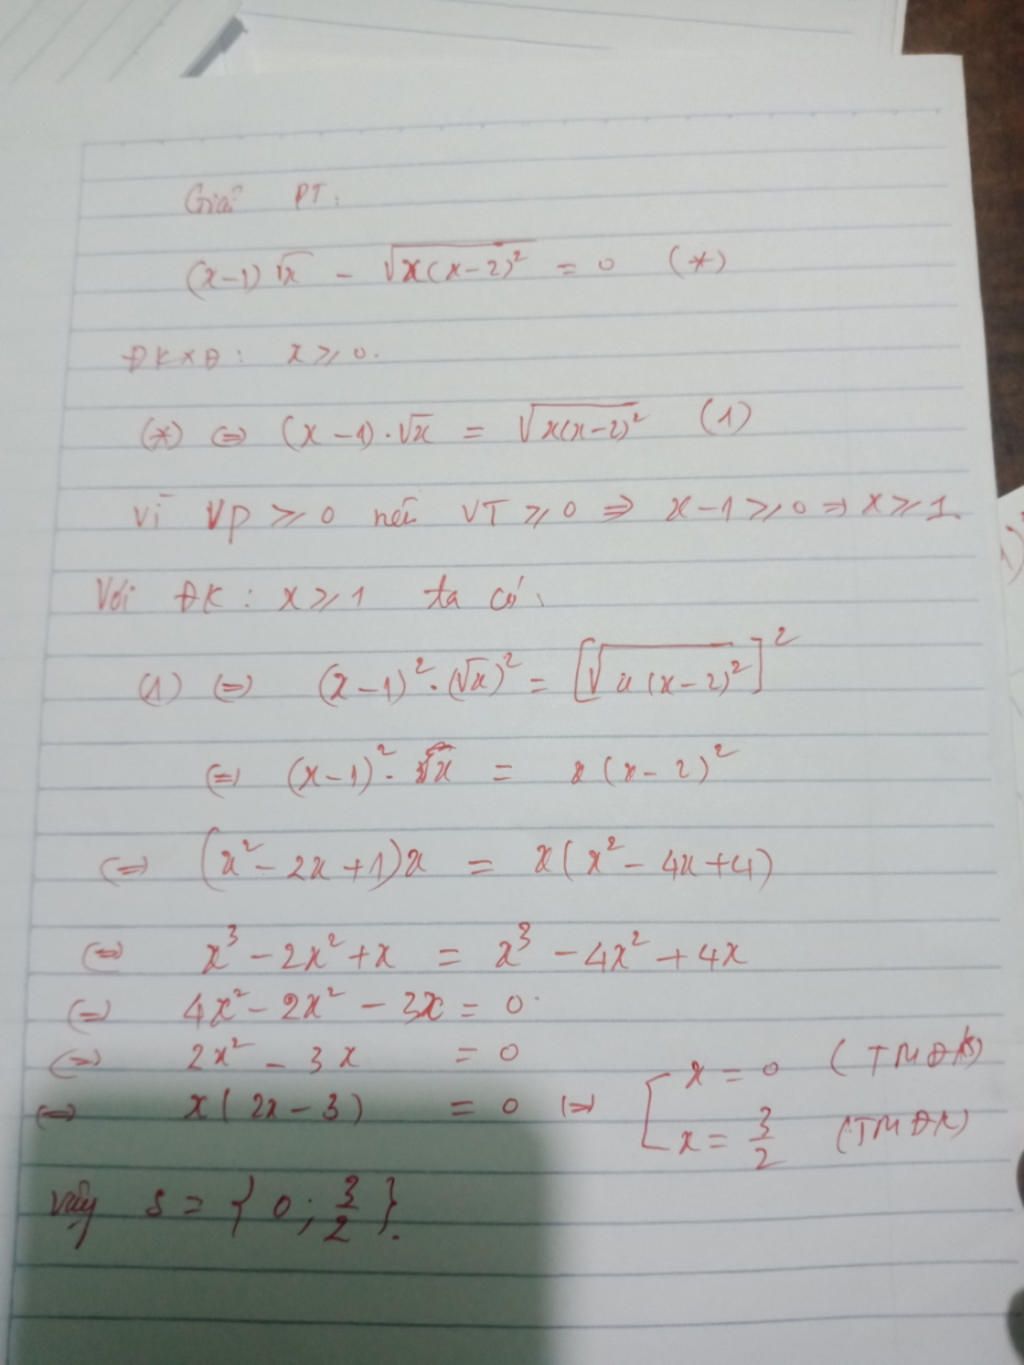 Giải PT:
(x-1)√x - √(x(x-2)²) = 0 (*)
ĐKXĐ: x ⩾ 0.
(*) ⇔ (x-1)·√x = √(x(x-2)²) (1)
Vì VP ⩾ 0 nên VT ⩾ 0 ⇒ x-1 ⩾ 0 ⇒ x ⩾ 1.
Với ĐK: x ⩾ 1 ta có:
(1) ⇔ (x-1)²·(√x)² = [√(x(x-2)²)]²
⇔ (x-1)²· x = x(x-2)²
⇔ (x²-2x+1)x = x(x²-4x+4)
⇔ x³-2x²+x = x³-4x²+4x
⇔ 4x²-2x²-3x = 0.
⇔ 2x²-3x = 0
⇔ x(2x-3) = 0 ⇔ [ x = 0 (TMĐK)
x = 3/2 (TMĐK)
Vậy S = {0; 3/2}.